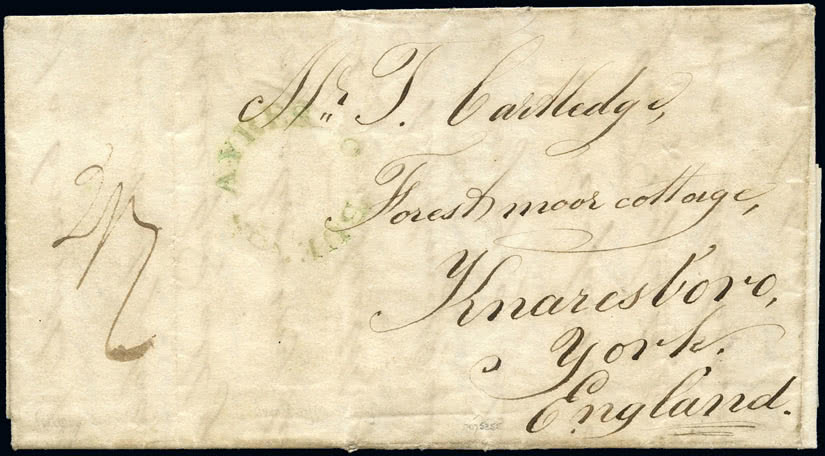 Mr. T. Cartledge,
Forest moor cottage,
Knaresboro,
York.
England.